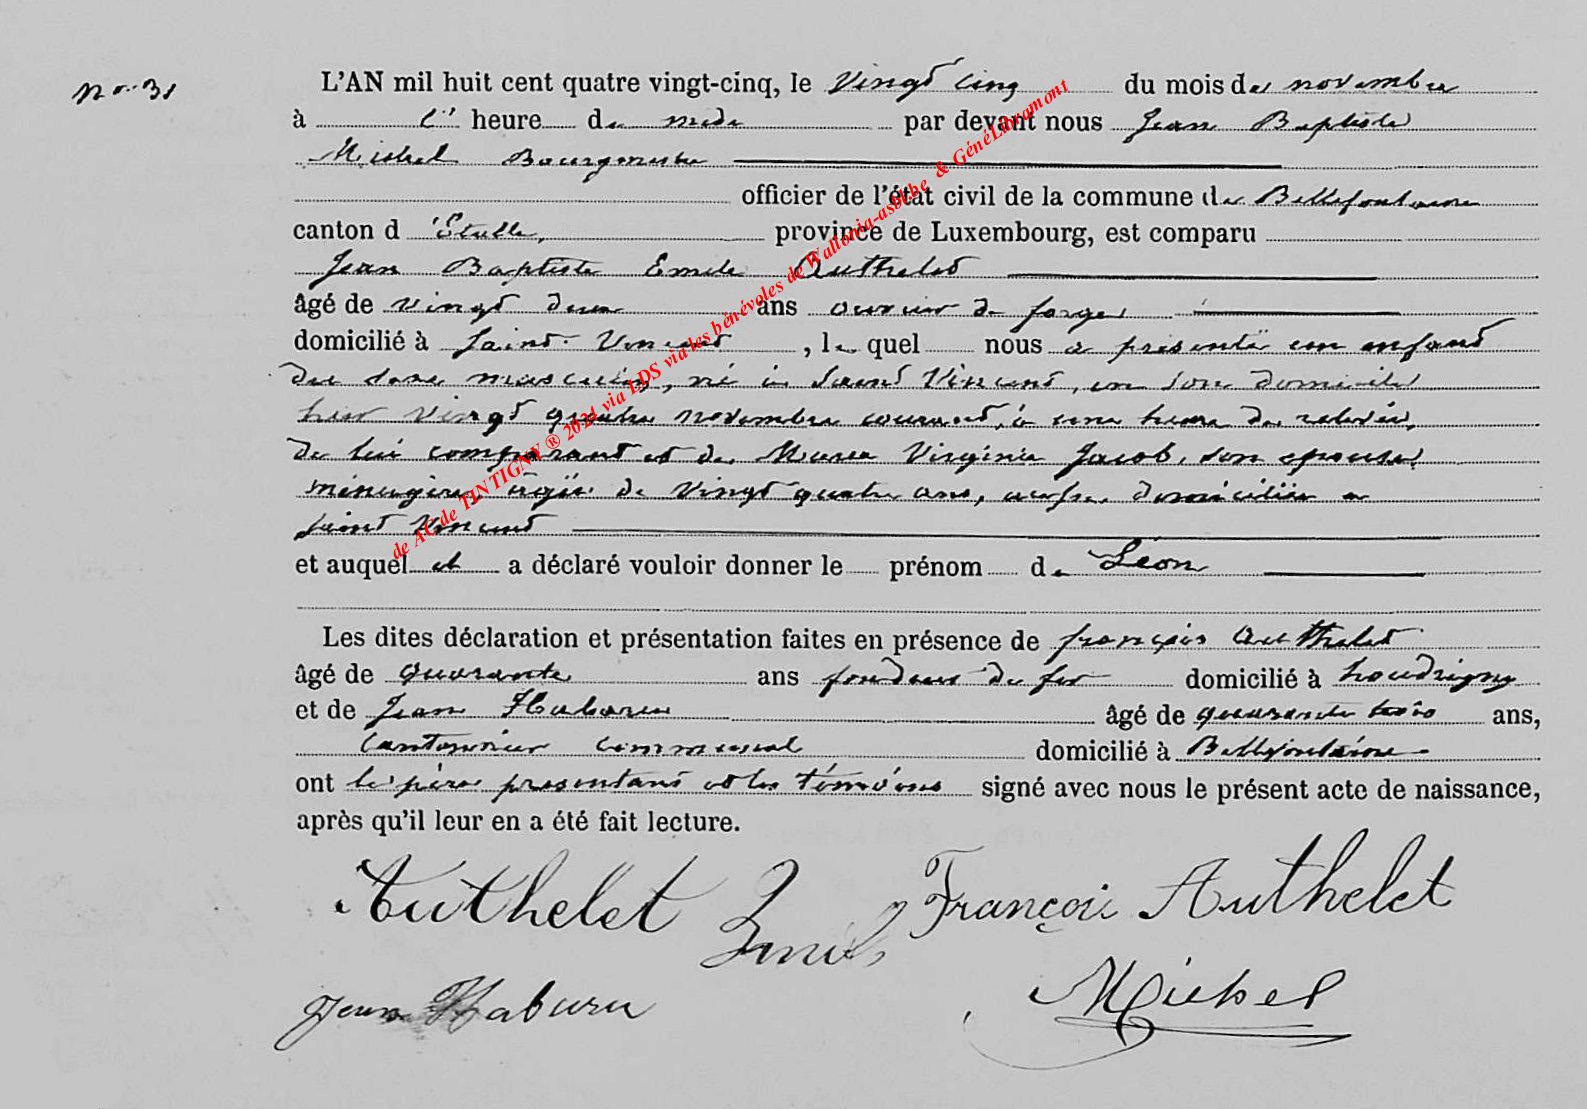 No 31
L'AN mil huit cent quatre vingt-cinq, le vingt cinq du mois de novembre
à l' heure de midi par devant nous Jean Baptiste
Michel Bourgmestre
officier de l'état civil de la commune de Bellefontaine
canton d 'Etalle, province de Luxembourg, est comparu
Jean Baptiste Emile Authelet
âgé de vingt deux ans ouvrier de forges
domicilié à Saint Vincent , le quel nous a présenté un enfant
du sexe masculin, né à Saint Vincent, en son domicile
hier vingt quatre novembre courant, à une heure de relevée,
de lui comparant et de Maria Virginie Jacob, son épouse,
ménagère, âgée de vingt quatre ans, aussi domiciliée à
Saint Vincent
et auquel il a déclaré vouloir donner le prénom de Léon
Les dites déclaration et présentation faites en présence de françois Authelet
âgé de quarante ans fondeur de fer domicilié à houdrigny
et de Jean Habaru âgé de quarante trois ans,
cantonnier communal domicilié à Bellefontaine
ont le père présentant et les témoins signé avec nous le présent acte de naissance,
après qu'il leur en a été fait lecture.
Authelet Emile François Authelet
Jean Habaru Michel
de AC de TINTIGNY ® 2021 via LDS via les bénévoles de Wallonia-asblbe & GénéLibramont